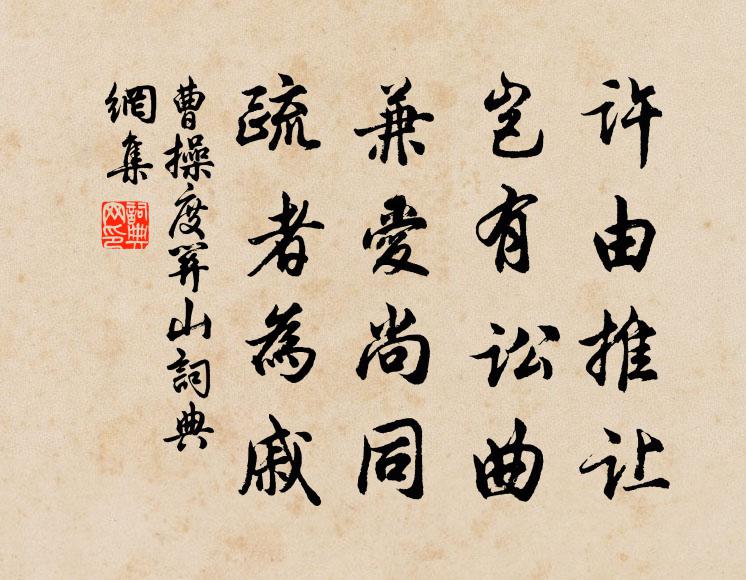 许由推让
岂有讼曲
兼愛尚同
疏者為戚
曹操度关山詞典
網集
詞典
网印